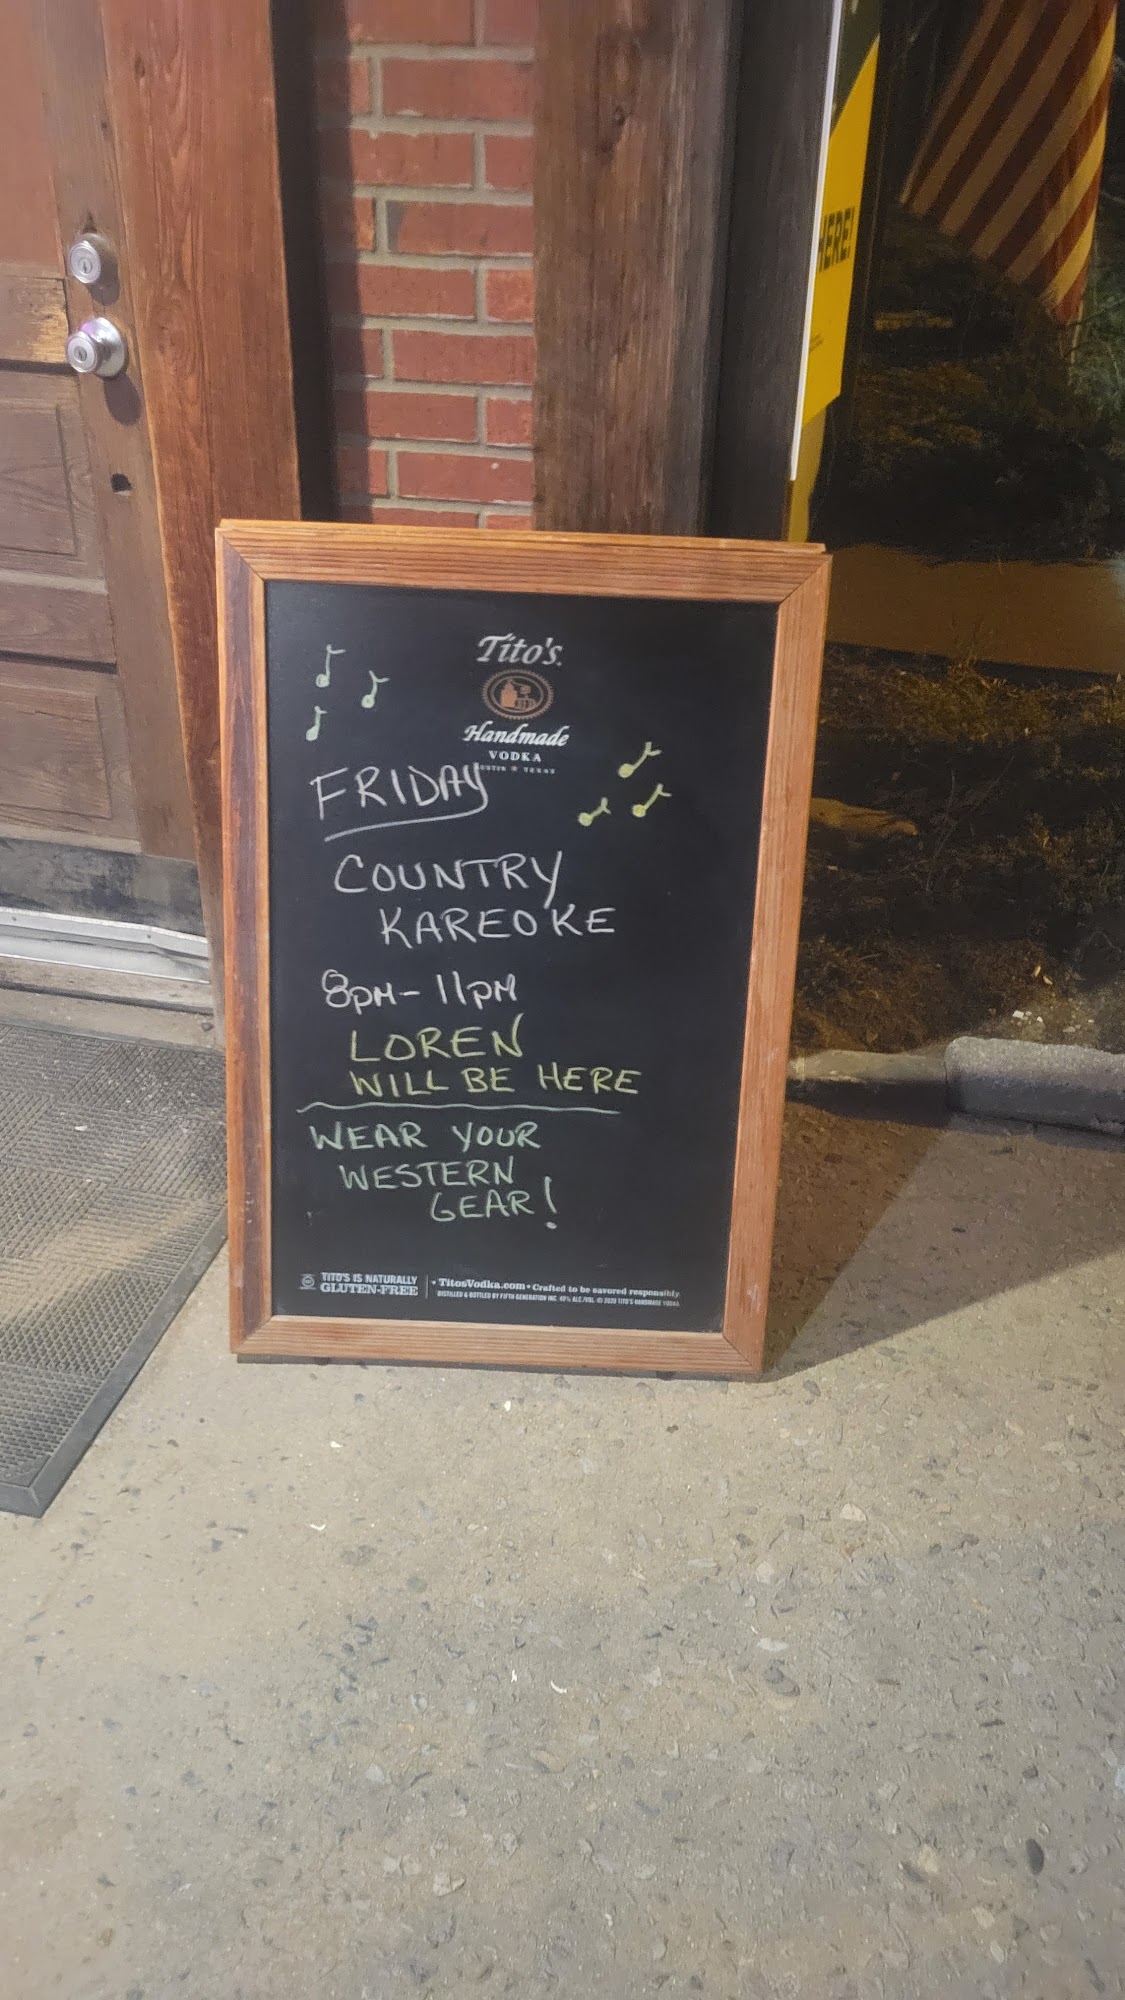 HERE!
Tito's
Handmade
VODKA
AUSTIN TEXAS
FRIDAY
COUNTRY
KAREOKE
8PM - 11PM
LOREN
WILL BE HERE
WEAR YOUR
WESTERN
GEAR!
TITO'S IS NATURALLY
GLUTEN-FREE
• TitosVodka.com • Crafted to be savored responsibly.
DISTILLED & BOTTLED BY FIFTH GENERATION INC. 40% ALC./VOL. © 2020 TITO'S HANDMADE VODKA.